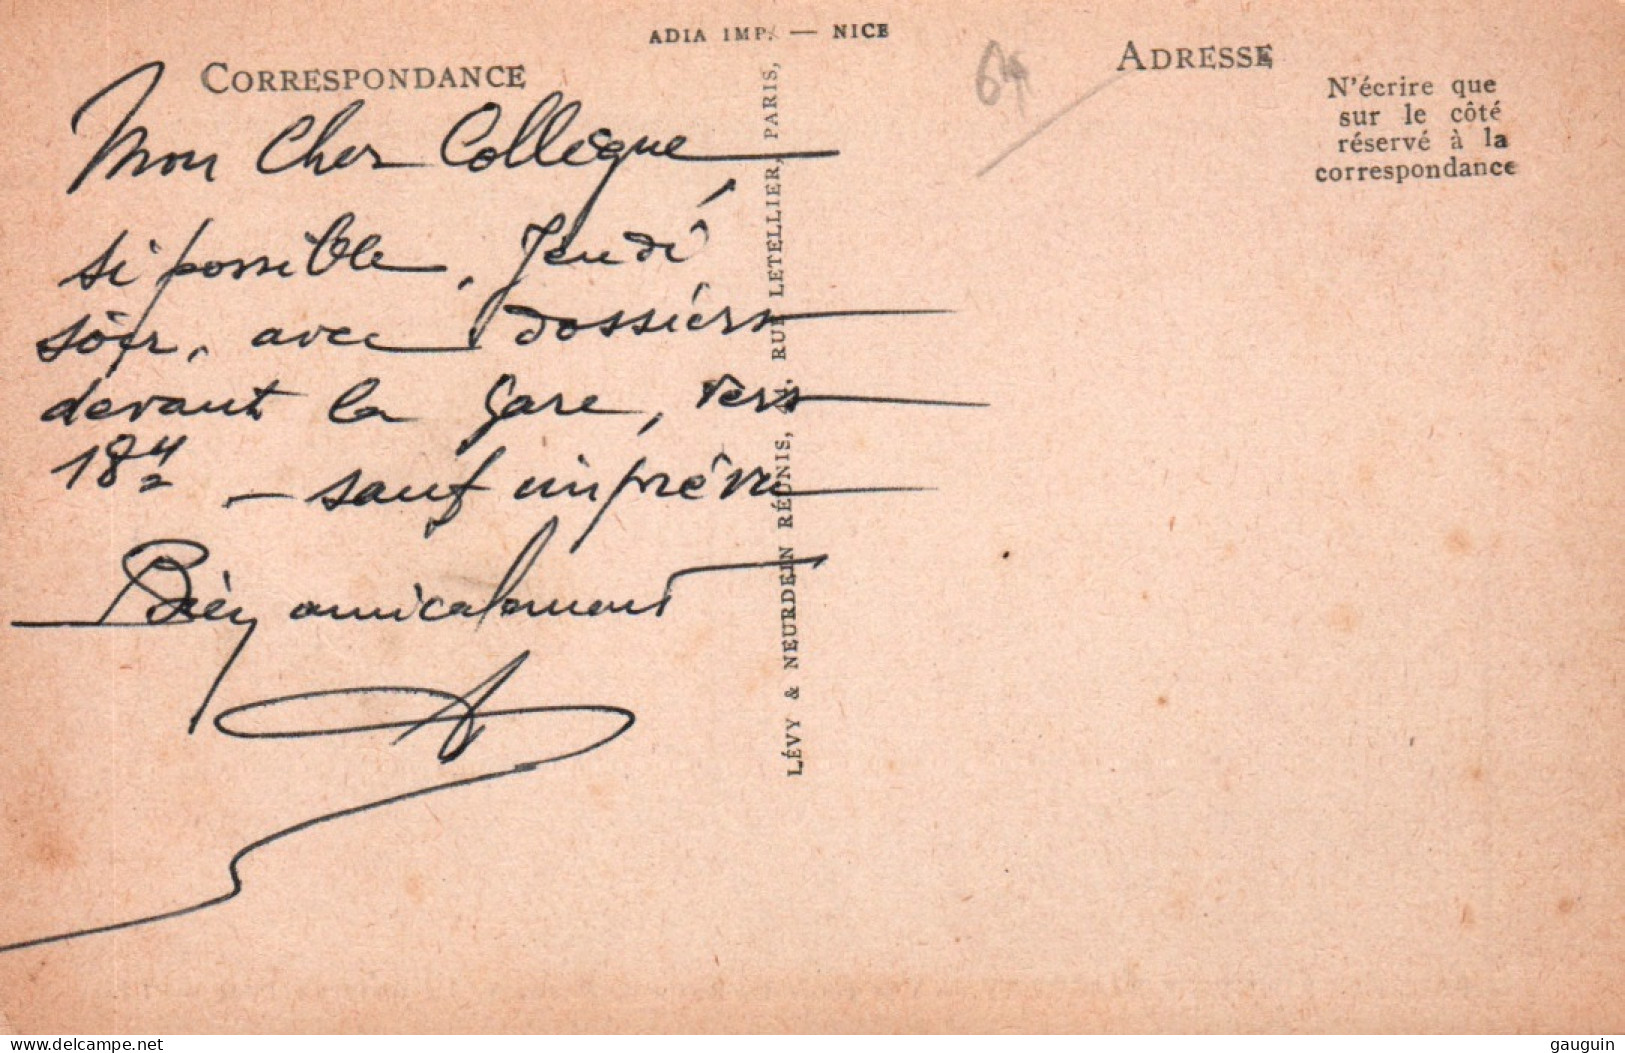 ADIA IMP. — NICE
CORRESPONDANCE
ADRESSE
N'écrire que
sur le côté
réservé à la
correspondance
64
Mon Cher Collègue
si possible, Jeudi
soir, avec dossiers
devant la gare, vers
18 h
— sauf imprévu
Bien amicalement
LÉVY & NEURDEIN RÉUNIS, RUE LETELLIER, PARIS,
delcampe.net
gauguin